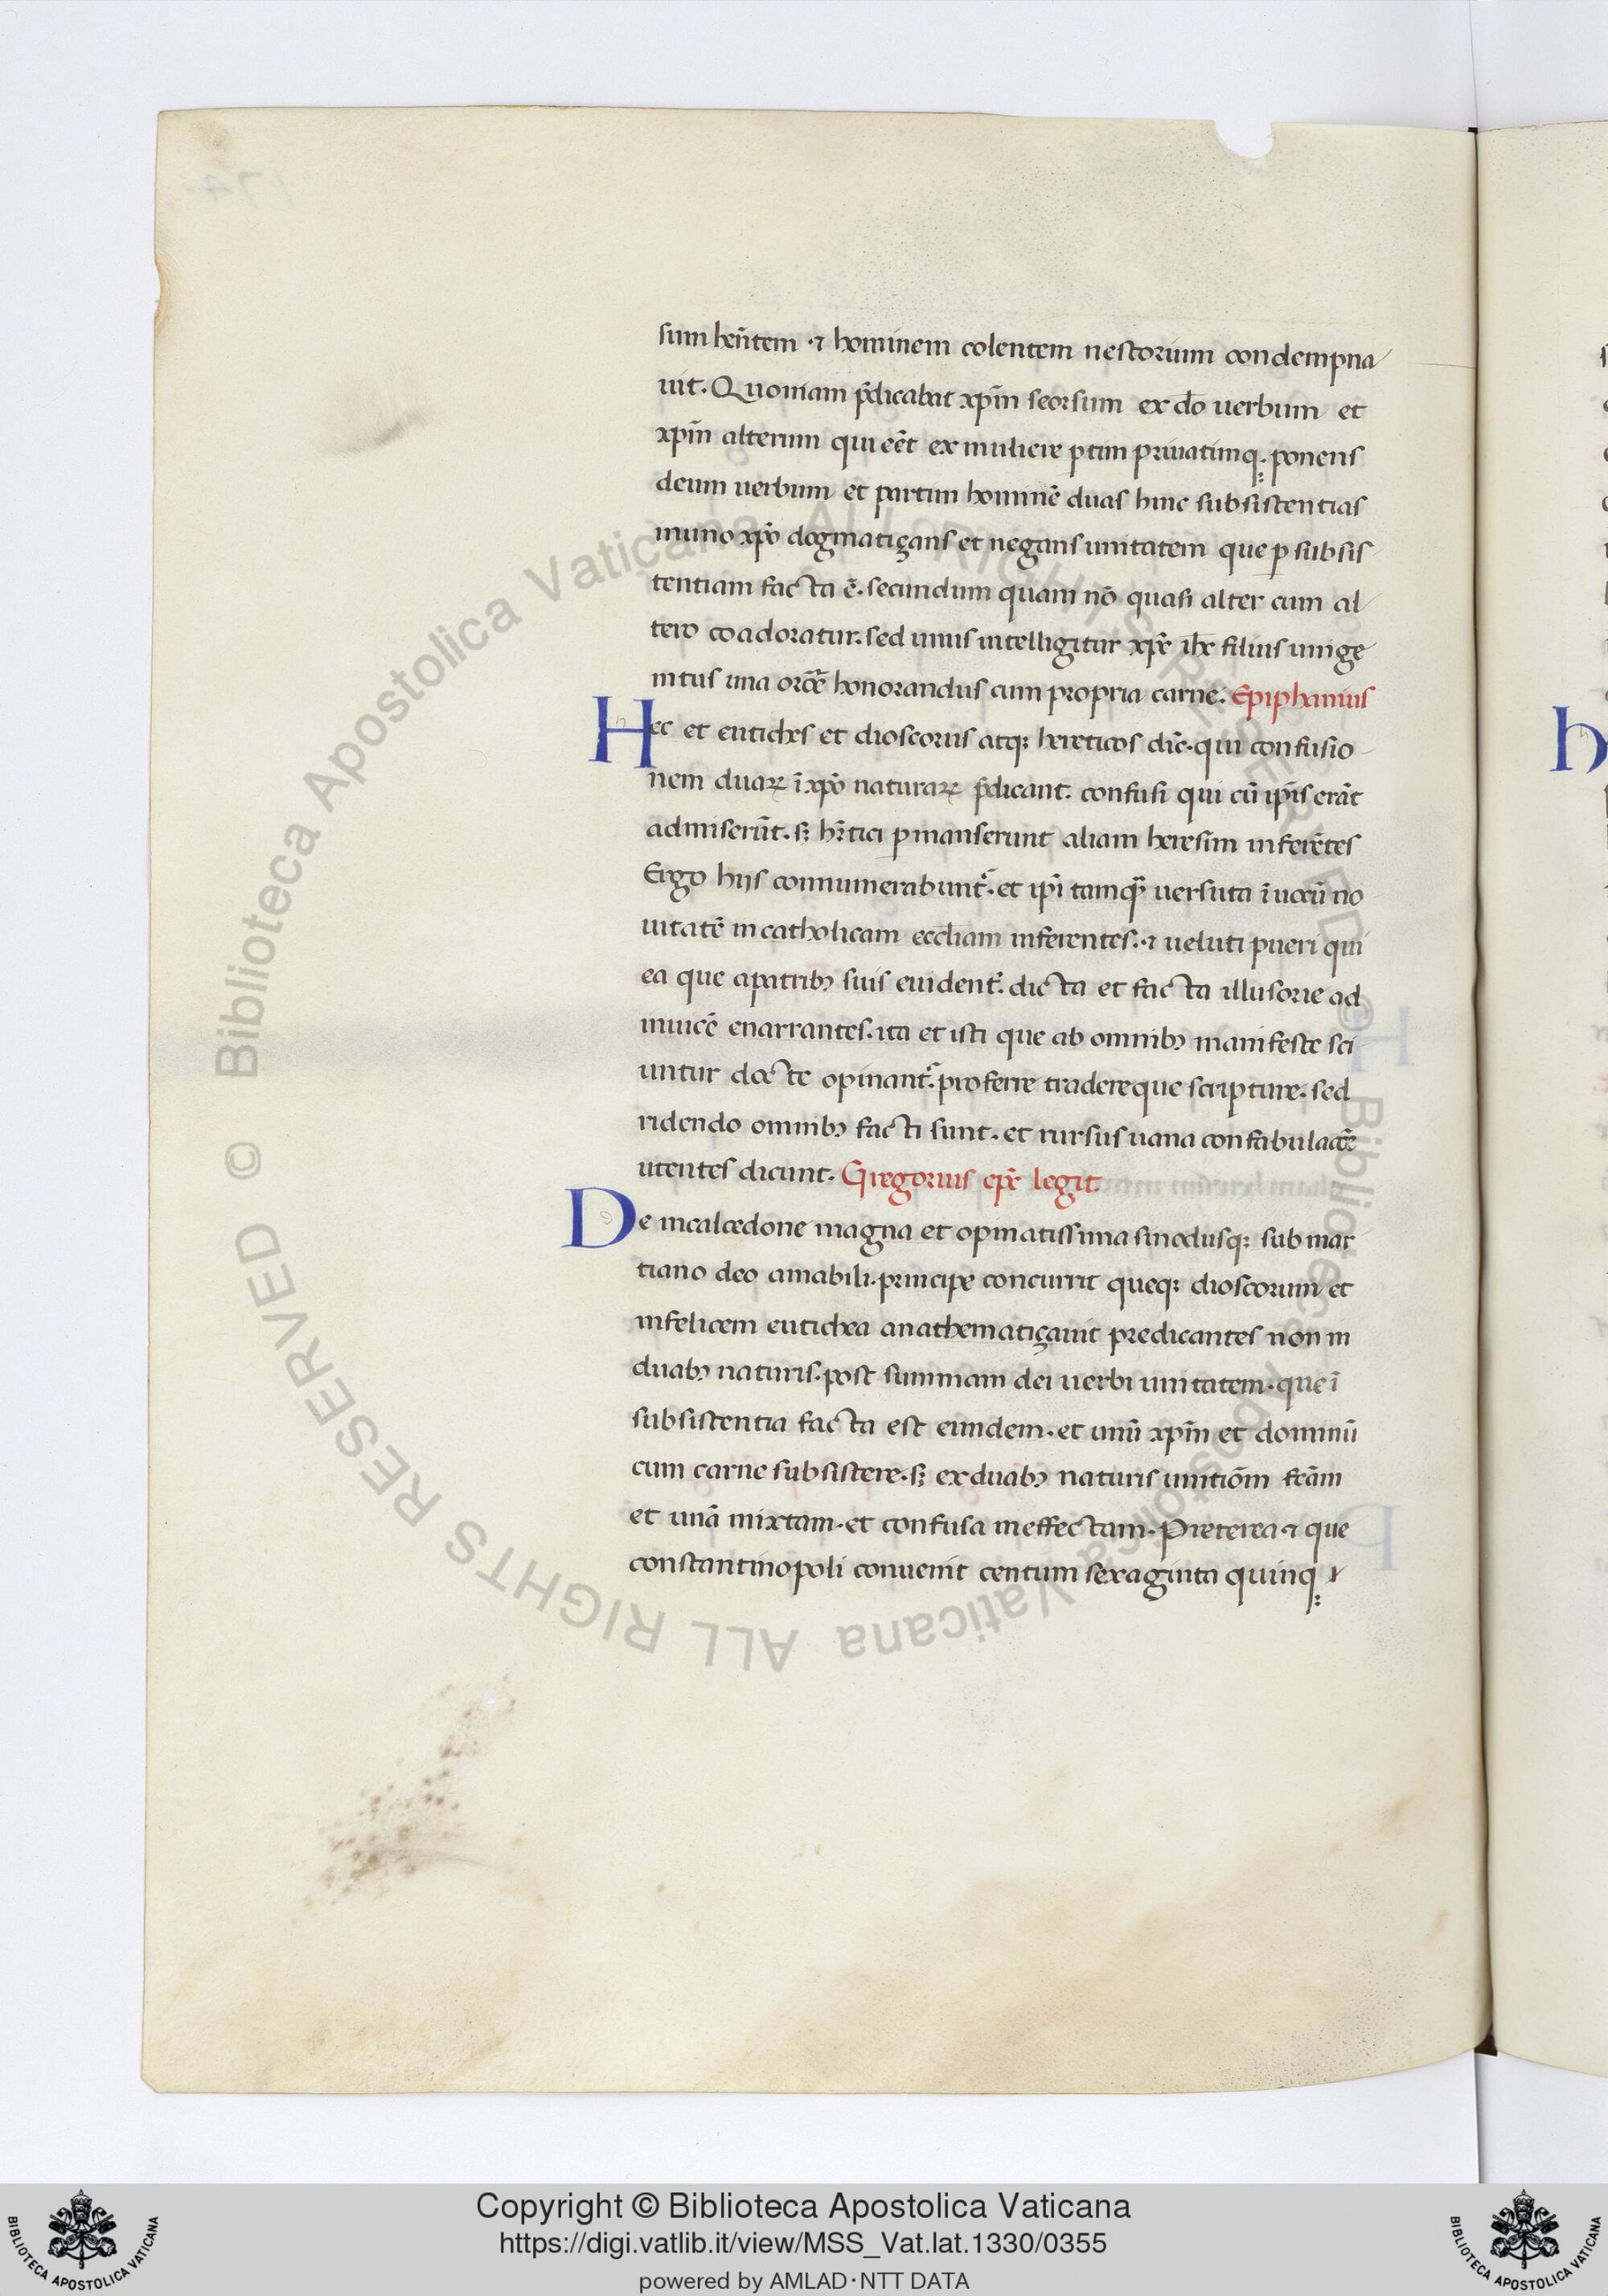 sum hēntem ⁊ hominem colentem nestorium condempna
uit. Quoniam p̄dicabat xp̄m seorsum ex dō uerbum et
xp̄m alterum qui eēt ex muliere ꝑtim priuatimqꝫ ponens
deum uerbum et partim hominē duas hinc subsistentias
in uno xp̄o dogmatiçans et negans unitatem que ꝑ subsis
tentiam facta ē. secundum quam nō quasi alter cum al
tero coadoratur. sed unus intelligitur xp̄c ih̄c filius unige
nitus una orōe honorandus cum propria carne. Epiphanius
Hec et eutiches et dioscorus atqꝫ hereticos dīc. qui confusio
nem duaꝝ ī xp̄o naturaꝝ p̄dicant. confusi qui cū ip̄is erāt
admiserūt. sꝫ hr̄tici ꝑmanserunt aliam heresim inferētes
Ergo hijs connumerabunt᷑. et ip̄i tamqꝫ versuta ī uocū no
uitatē in catholicam eccl̄iam inferentes. ⁊ ueluti pueri qui
ea que apatribꝫ suis euident᷑. dicta et facta illusorie ad
inuicē enarrantes. ita et isti que ab omnibꝫ manifeste sci
untur docte opinant᷑. proferre tradereque scripture. sed
ridendo omnibꝫ facti sunt. et rursus uana confabulacōe
utentes dicunt. Gregorius ep̄c legit.
De incalcedone magna et opinatissima sinodusqꝫ sub mar
tiano deo amabili. principe concurrit queqꝫ dioscorum et
infelicem eutichea anathematiçauit predicantes non in
duabꝫ naturis. post summam dei uerbi unitatem. que ī
subsistentia facta est eundem. et unū xp̄m et dominū
cum carne subsistere. sꝫ ex duabꝫ naturis unitiōm fcām
et unā mixtam. et confusa in effectam. Preterea ⁊ que
constantinopoli conuenit centum sexaginta quinqꝫ
© Biblioteca Apostolica Vaticana ALL RIGHTS RESERVED © Biblioteca Apostolica Vaticana ALL RIGHTS RESERVED
Copyright © Biblioteca Apostolica Vaticana
https://digi.vatlib.it/view/MSS_Vat.lat.1330/0355
powered by AMLAD·NTT DATA
BIBLIOTECA APOSTOLICA VATICANA
BIBLIOTECA APOSTOLICA VATICANA